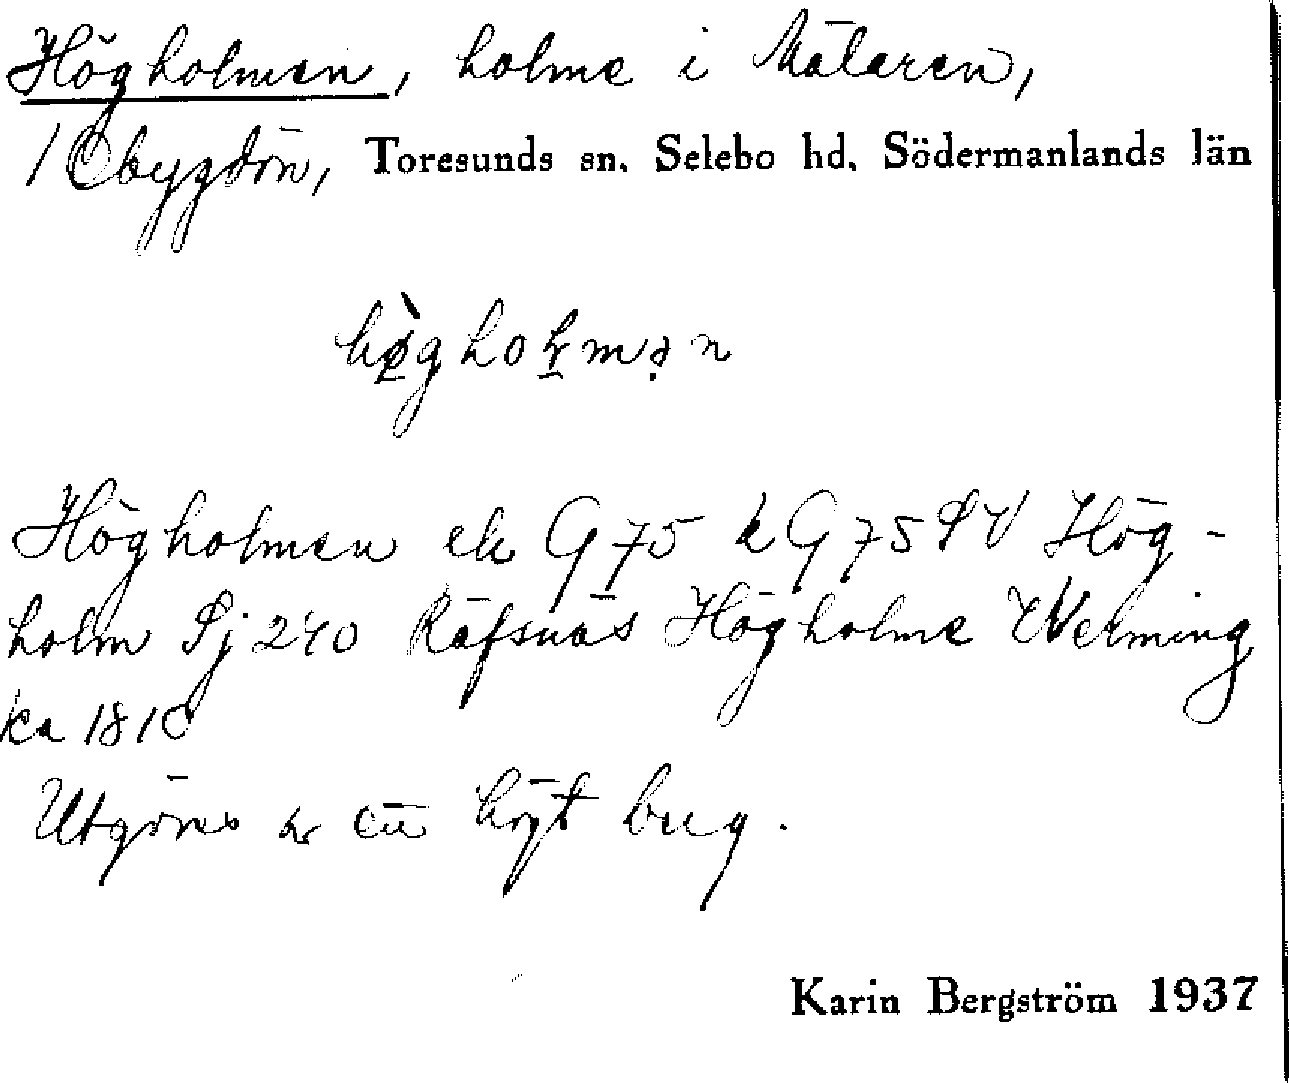 Högholmen, holme i Mälaren,
/ Obygdön, Toresunds sn. Selebo hd. Södermanlands län
Högholmen ek G 75 k G 75 SV Hög-
holm Sj 240 Räfsnäs Högholme Werming
ca 1810
Utgöres av ett högt berg.
Karin Bergström 1937